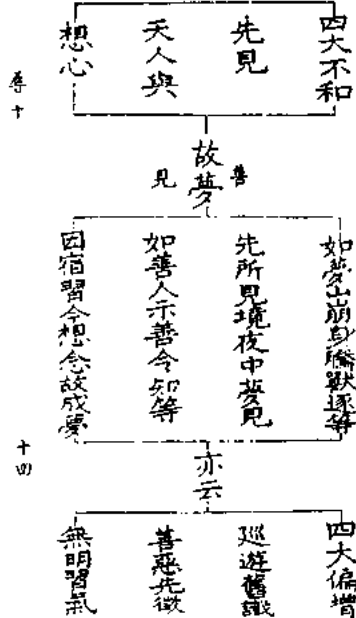 四大不和
先見
天人與
想心
尋十
故夢
善
見
如夢山崩身騰獸逐等
先所見境夜中夢見
如善人示善令知等
因宿習今想念故成夢
十四
亦云
四大偏增
巡遊舊識
善惡先徵
無明習氣